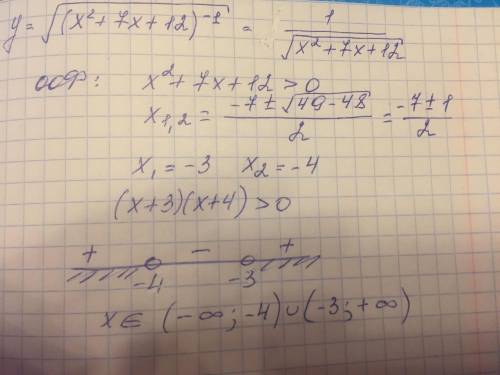 y = √((x² + 7x + 12)⁻¹) = 1/√(x² + 7x + 12)
ООФ: x² + 7x + 12 > 0
x₁,₂ = (-7 ± √(49 - 48))/2 = (-7 ± 1)/2
x₁ = -3 x₂ = -4
(x+3)(x+4) > 0
+ - +
-4 -3
x ∈ (-∞; -4) ∪ (-3; +∞)